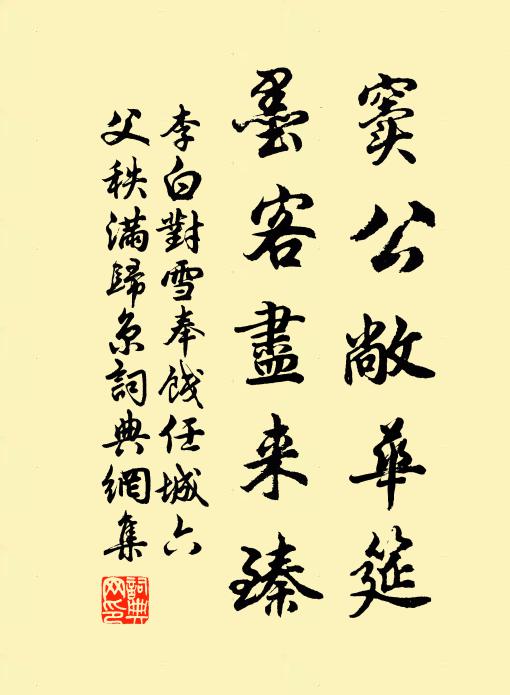 窦公敞華筵
墨客盡来臻
李白對雪奉餞任城六
父秩滿歸京詞典網集
詞典
网印